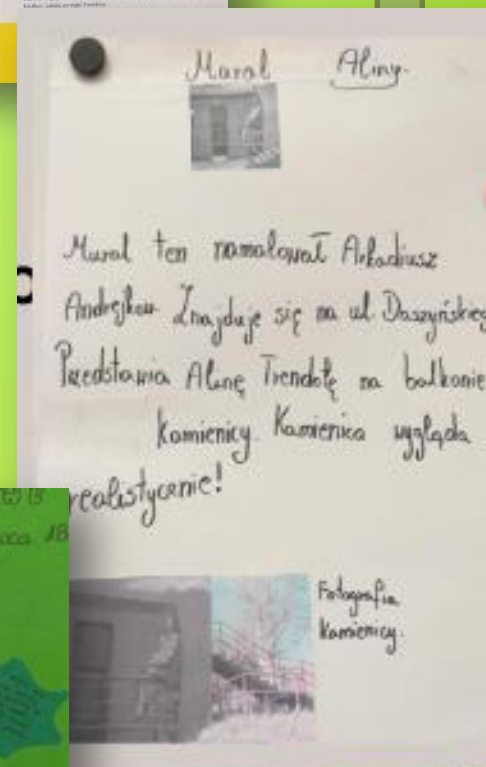 Mural Aliny
Mural ten namalował Arkadiusz
Andrejkow Znajduje się na ul Daszyńskieg
Przedstawia Alinę Trendotę na balkonie
kamienicy. Kamienica wygląda
realistycznie!
Fotografia
kamienicy.